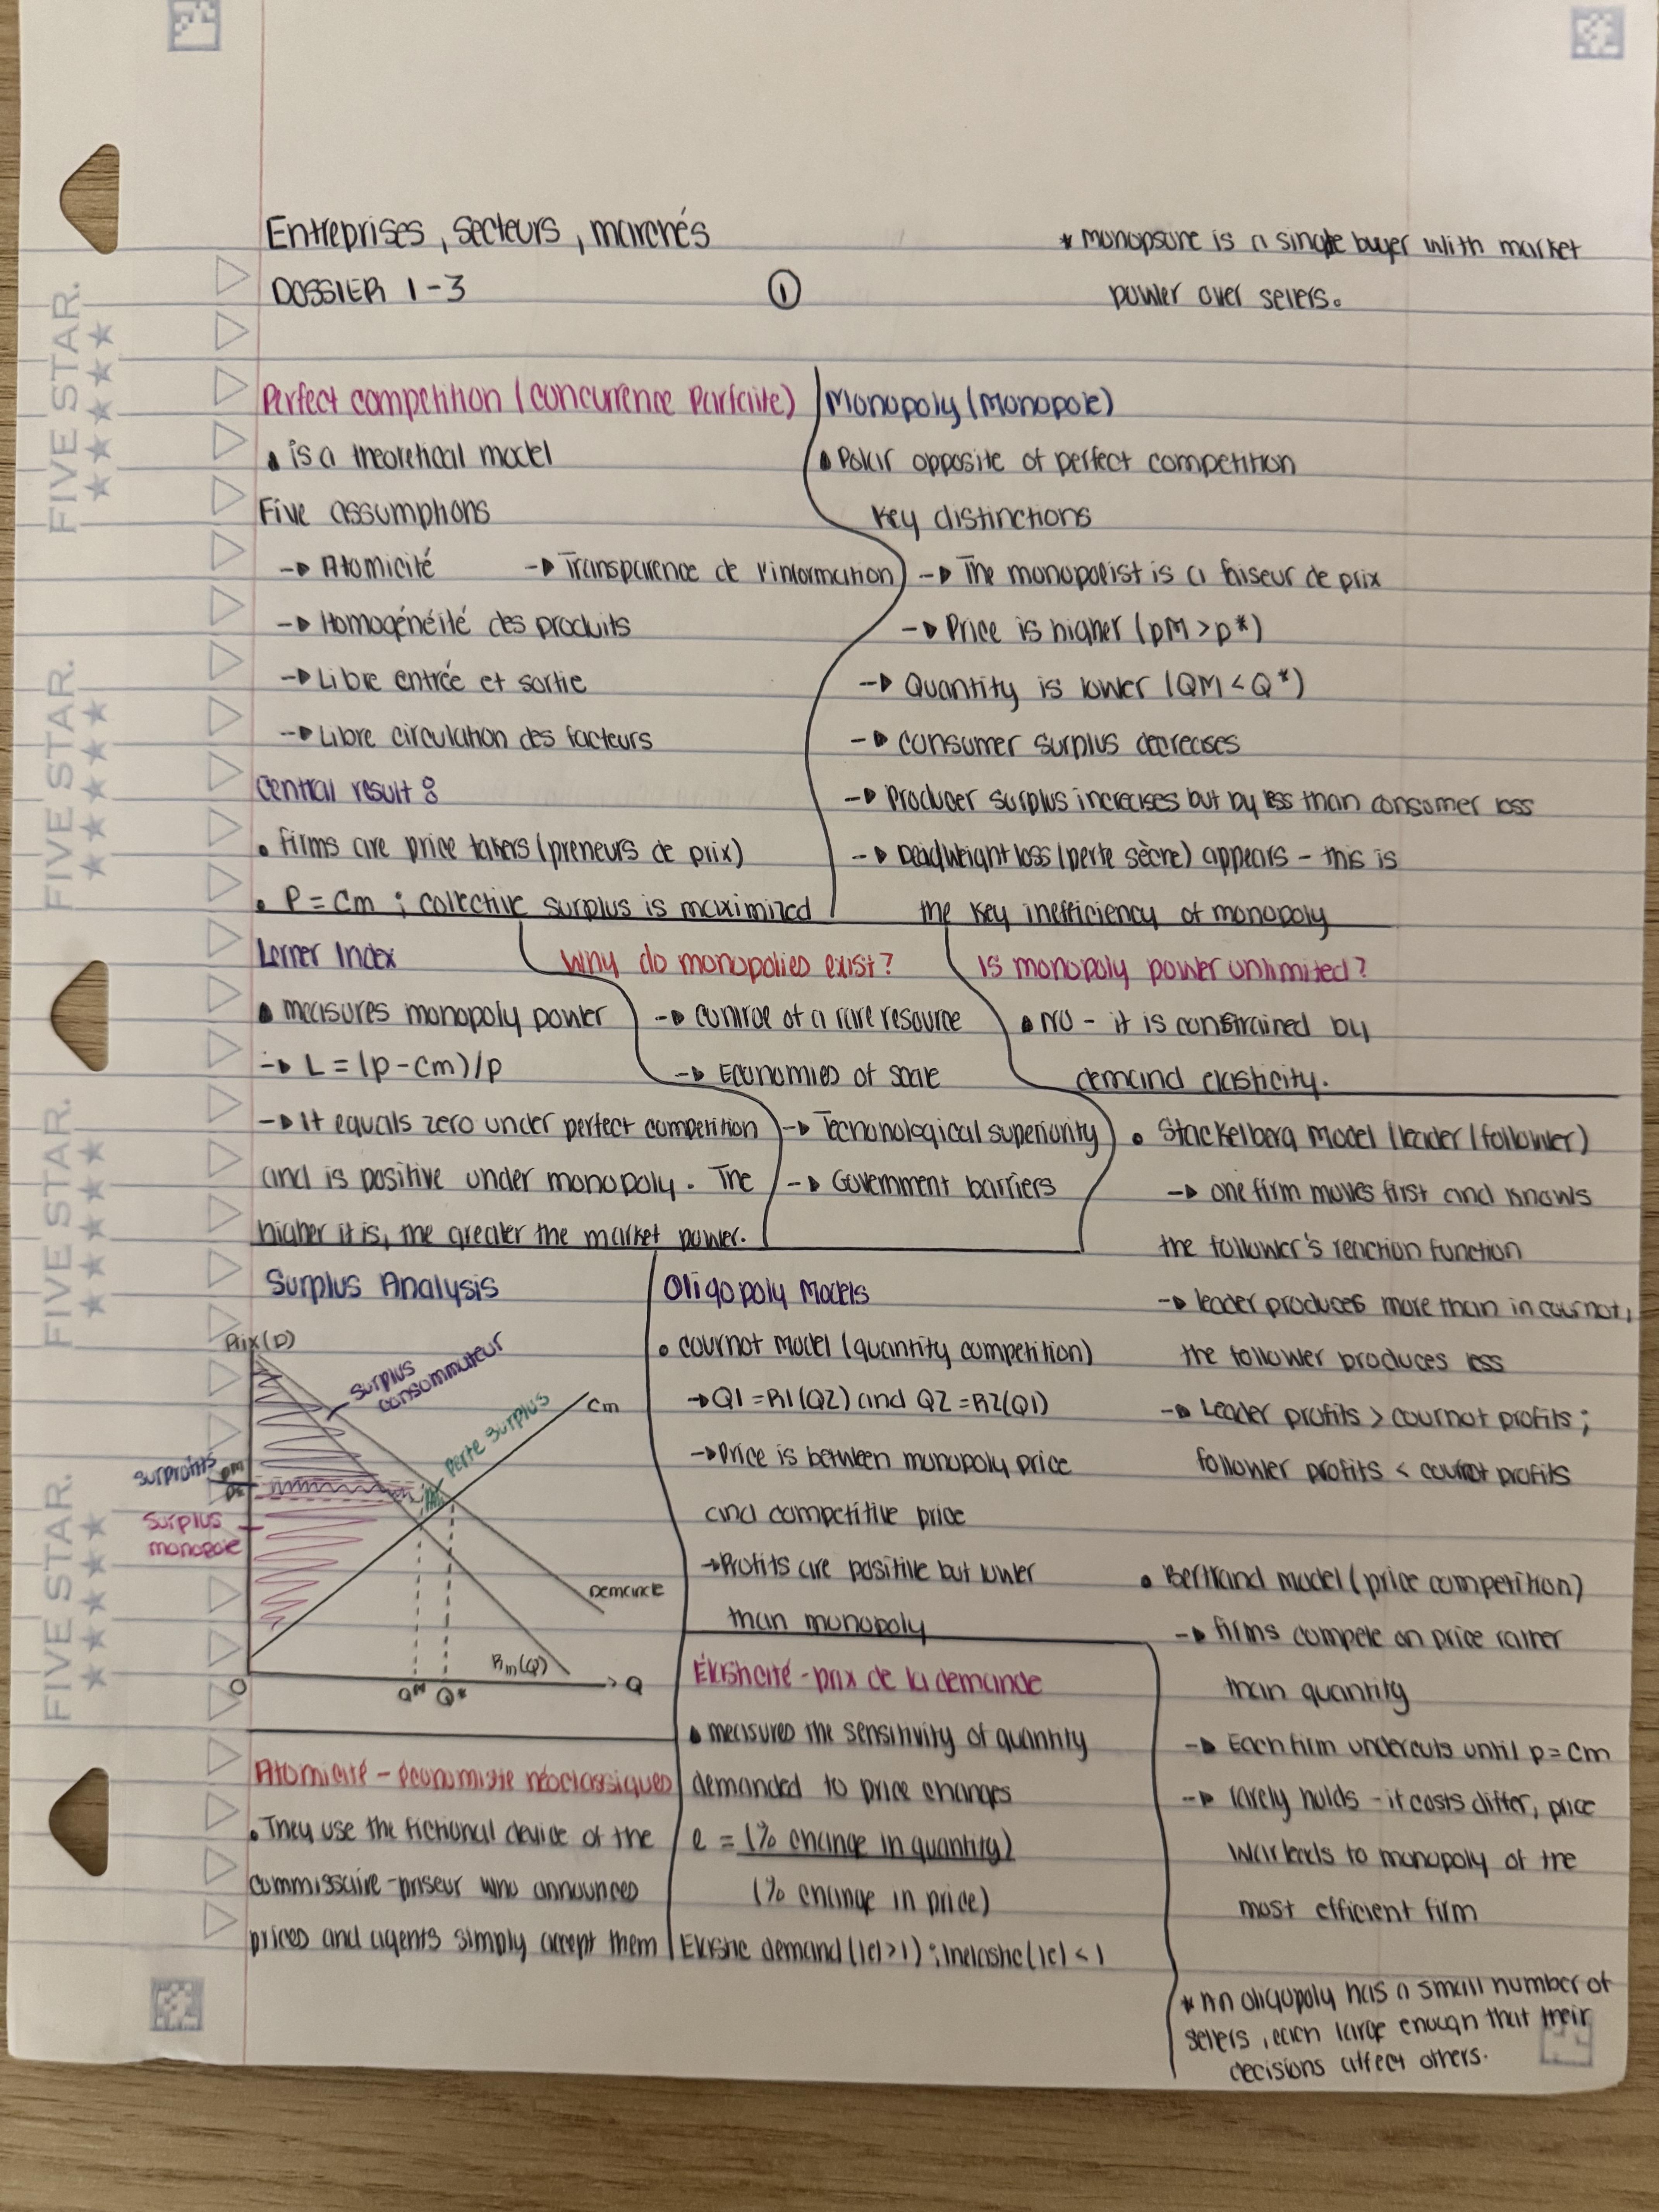 Entreprises, secteurs, marchés
DOSSIER 1-3
①
* monopsone is a single buyer with market
power over sellers.
Perfect competition (concurrence Parfaite)
• is a theoretical model
Five assumptions
→ Atomicité
→ Transparence de l'information
→ Homogénéité des produits
→ Libre entrée et sortie
→ Libre circulation des facteurs
Central result :
• firms are price takers (preneurs de prix)
• P = Cm ; collective surplus is maximized
Monopoly (monopole)
• Polar opposite of perfect competition
Key distinctions
→ The monopolist is a faiseur de prix
→ Price is higher (pM > p*)
→ Quantity is lower (QM < Q*)
→ consumer surplus decreases
→ Producer surplus increases but by less than consumer loss
→ Deadweight loss (perte sèche) appears - this is
the key inefficiency of monopoly
Lerner Index
• measures monopoly power
→ L = (p - Cm)/p
→ It equals zero under perfect competition
and is positive under monopoly. The
higher it is, the greater the market power.
Why do monopolies exist?
→ control of a rare resource
→ Economies of scale
→ Technonological superiority
→ Government barriers
Is monopoly power unlimited?
• NO - it is constrained by
demand elasticity.
Surplus Analysis
Prix (D)
surplus
consommateur
perte surplus
Cm
surprofits
pm
surplus
monopole
Demande
Rm(Q)
O
QM
Q*
Q
Oligopoly Models
• cournot model (quantity competition)
→ Q1 = R1(Q2) and Q2 = R2(Q1)
→ Price is between monopoly price
and competitive price
→ Profits are positive but lower
than monopoly
• Stackelberg Model (leader/follower)
→ one firm moves first and knows
the follower's reaction function
→ leader produces more than in cournot,
the follower produces less
→ Leader profits > cournot profits ;
follower profits < cournot profits
• Bertrand model (price competition)
→ firms compete on price rather
than quantity
→ Each firm undercuts until p = Cm
→ rarely holds - if costs differ, price
war leads to monopoly of the
most efficient firm
Atomicité - économiste néoclassiques
• They use the fictional device of the
commissaire-priseur who announces
prices and agents simply accept them
Élasticité - prix de la demande
• measures the sensitivity of quantity
demanded to price changes
e = (% change in quantity)
(% change in price)
Elastic demand (|e| > 1) ; Inelastic (|e| < 1
* An oligopoly has a small number of
sellers, each large enough that their
decisions affect others.
FIVE STAR.
FIVE STAR.
FIVE STAR.
FIVE STAR.